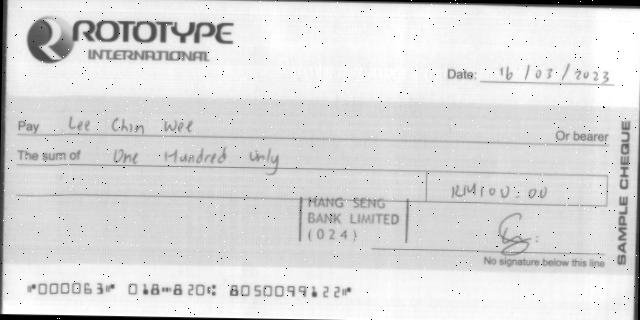 ROTOTYPE
INTERNATIONAL
Date: 16/03/2023
Pay Lee Chin Wee
Or bearer
The sum of One Hundred Only
RM100.00
HANG SENG
BANK LIMITED
(024)
No signature below this line
SAMPLE CHEQUE
"000063" 018-820: 8050099122"